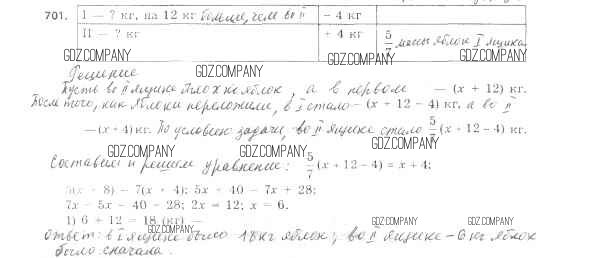 701. I — ? кг, на 12 кг больше, чем во II − 4 кг
II — ? кг + 4 кг 5/7 массы яблок I ящика
GDZ.COMPANY GDZ.COMPANY GDZ.COMPANY
Решение
Пусть во II ящике было x кг яблок, а в первом — (x + 12) кг.
После того, как яблоки переложили, в I стало — (x + 12 − 4) кг, а во II
— (x + 4) кг. По условию задачи, во II ящике стало 5/7 (x + 12 − 4) кг.
GDZ.COMPANY GDZ.COMPANY GDZ.COMPANY
Составим и решим уравнение: 5/7 (x + 12 − 4) = x + 4;
5(x + 8) = 7(x + 4); 5x + 40 = 7x + 28;
7x − 5x = 40 − 28; 2x = 12; x = 6.
1) 6 + 12 = 18 (кг) —
GDZ.COMPANY GDZ.COMPANY GDZ.COMPANY
Ответ: в I ящике было 18 кг яблок; во II ящике — 6 кг яблок
было сначала.